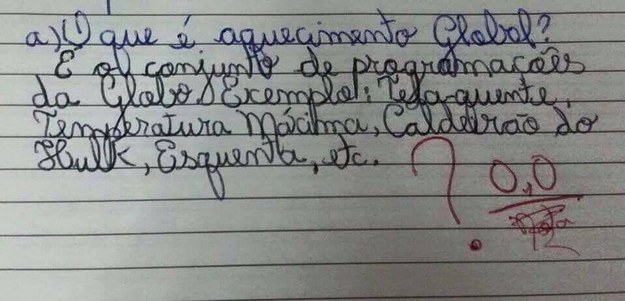 a) O que é aquecimento Global?
É o conjunto de programações
da Globo. Exemplo: Tela-quente,
Temperatura Máxima, Caldeirão do
Hulk, Esquenta, etc. ?
0,0